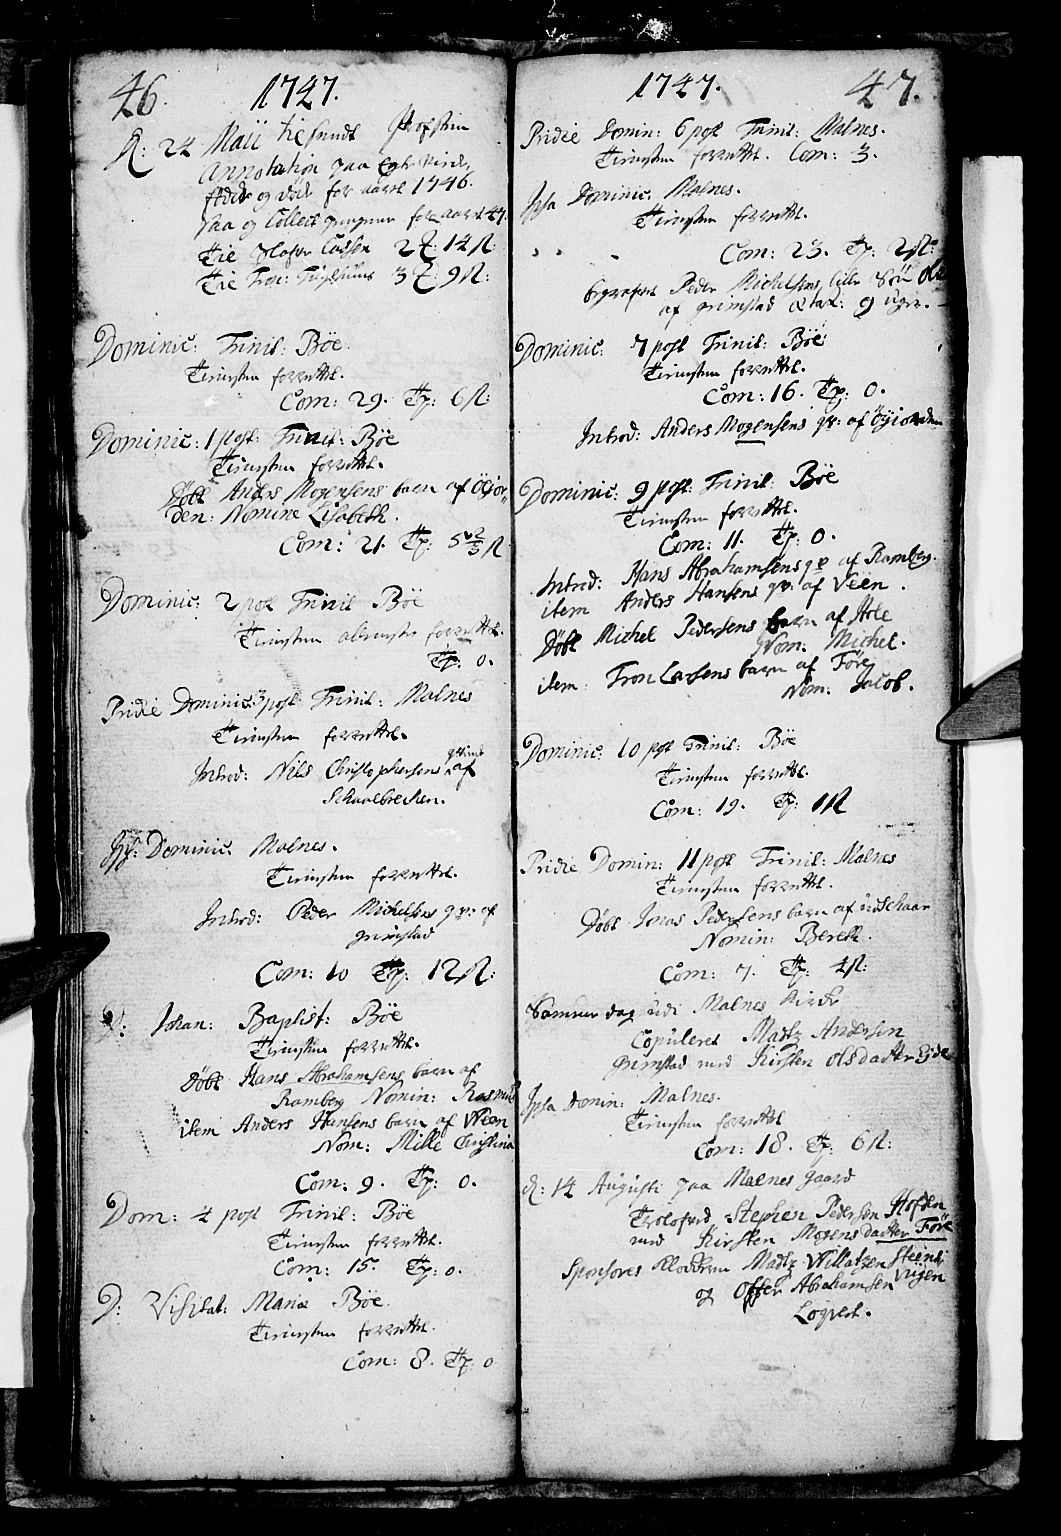 46. 1747.
R: 24 Maii tilsendt Profsten
Annotation paa
fødde og døde for aaret 1746.
saa og Collect for aaret 47.
Til Cassen 2 14 ſt:
Til 3 9 ſt:
Dominic: Trinit: Böe
Tienisten forrettet.
Com: 29. Tp: 6 ſt:
Dominic: 1 post: Trinit: Böe
Tienisten forrettet.
Döbt Anders Mogensens barn af Ögior„
den: Nomine Lisabeth.
Com: 21. Tp: 5 2/3 ſt
Dominic: 2 post Trinit Böe
Tienisten forrettet.
Tp: 0.
Pridie Dominic: 3 post Trinit: Malnes
Tienisten forrettet.
Introd: Nils Christophersens qvinde af
Schaalbrechen.
Ips: Dominic. Malnes.
Tienisten forrettet.
Introd: Peder Michelsens qv: af
Grimstad
Com: 10 Tp: 12 ſt:
D: Johan: Baptist: Böe
Tienisten forrettet.
Döbt Hans Abrahamsens barn af
Ramberg Nomin: Rasmus
item Anders Hansens barn afWeen
Nom: Mille Christina
Com: 9. Tp: 0.
Dom: 4 post Trinit: Böe
Tienisten forrettet.
Com: 15. Tp: 0.
D: Visitat: Mariæ Böe.
Tienisten forrettet.
Com: 8. Tp: 0
1747. 47.
Pridie Domin: 6 post Trinit: Malnes.
Tienisten forrettet. Com: 3.
Ipsa Dominic. Malnes.
Tienisten forrettet.
Com: 23. Tp: 2 ſt:
begravet Peder Michelsens lille Sön
af Grimstad ætat: 9 uger.
Dominic: 7 post Trinit: Böe
Tienisten forrettet.
Com: 16. Tp: 0.
Introd: Anders Mogensens qv: af Ögiorden
Dominic: 9 post: Trinit: Böe
Tienisten forrettet.
Com: 11. Tp: 0.
Introd: Hans Abrahamsens qv: af Ramberg.
item Anders Hansens qv: af Veen.
Döbt Michel Pedersens barn af Hole
Nom: Michel.
item: Tron Larsens barn af Före
Nom: Jacob.
Dominic: 10 post Trinit: Böe
Tienisten forrettet.
Com: 19. Tp: 1 ſt
Pridie Domin: 11 post Trinit: Malnes
Tienisten forrettet.
Döbt Jonas Pedersens barn af udschaar
Nomin: Bereth.
Com: 7. Tp: 4 ſt:
Samme dag udi Malnes Kirche
Copuleret Madtz Andersen
Grimstad med Kirsten Olsdatter Eide
Ipsa Domin: Malnes.
Tienisten forrettet
Com: 18. Tp: 6 ſt:
R: 14 Augusti paa Malnes gaard
Trolofved Stephen Pedersen Hofden
med Kirsten Mogensdatter Före
Sponsores Klockeren Madtz Willatzen Steins
og Offer Abrahamsen Vigen
Loqvest.